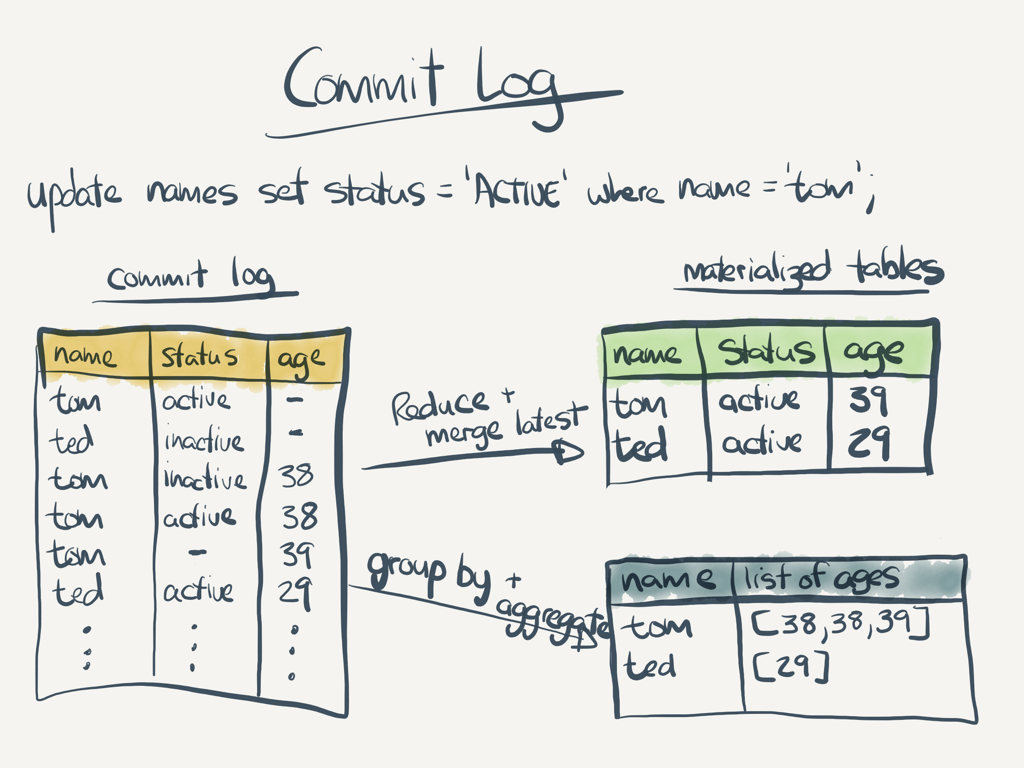 Commit Log
update names set status = 'ACTIVE' where name = 'tom';
commit log
name status age
tom active -
ted inactive -
tom inactive 38
tom active 38
tom - 39
ted active 29
Reduce +
merge latest
group by +
aggregate
materialized tables
name status age
tom active 39
ted active 29
name list of ages
tom [38,38,39]
ted [29]